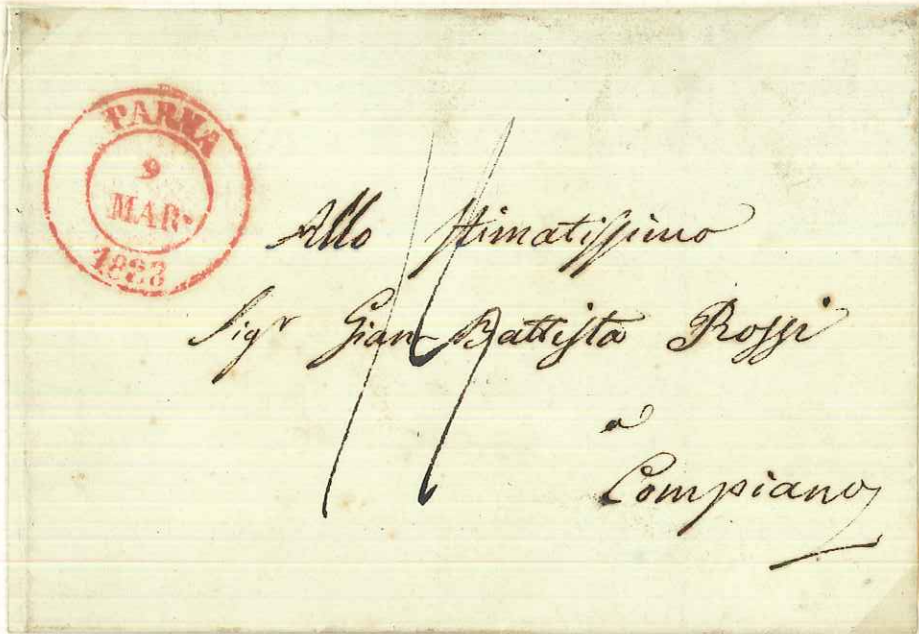 PARMA
9
MAR.
Allo Stimatissimo
Sigr Gian-Battista Rossi
a
Compiano